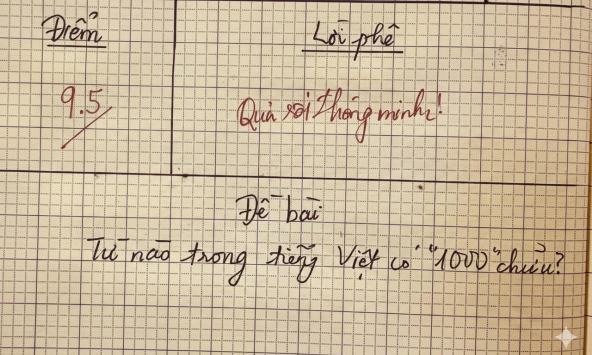 Điểm
Lời phê
9.5
Quá rồi thông minh!
Đề bài
Từ nào trong tiếng Việt có "1000" chữu?